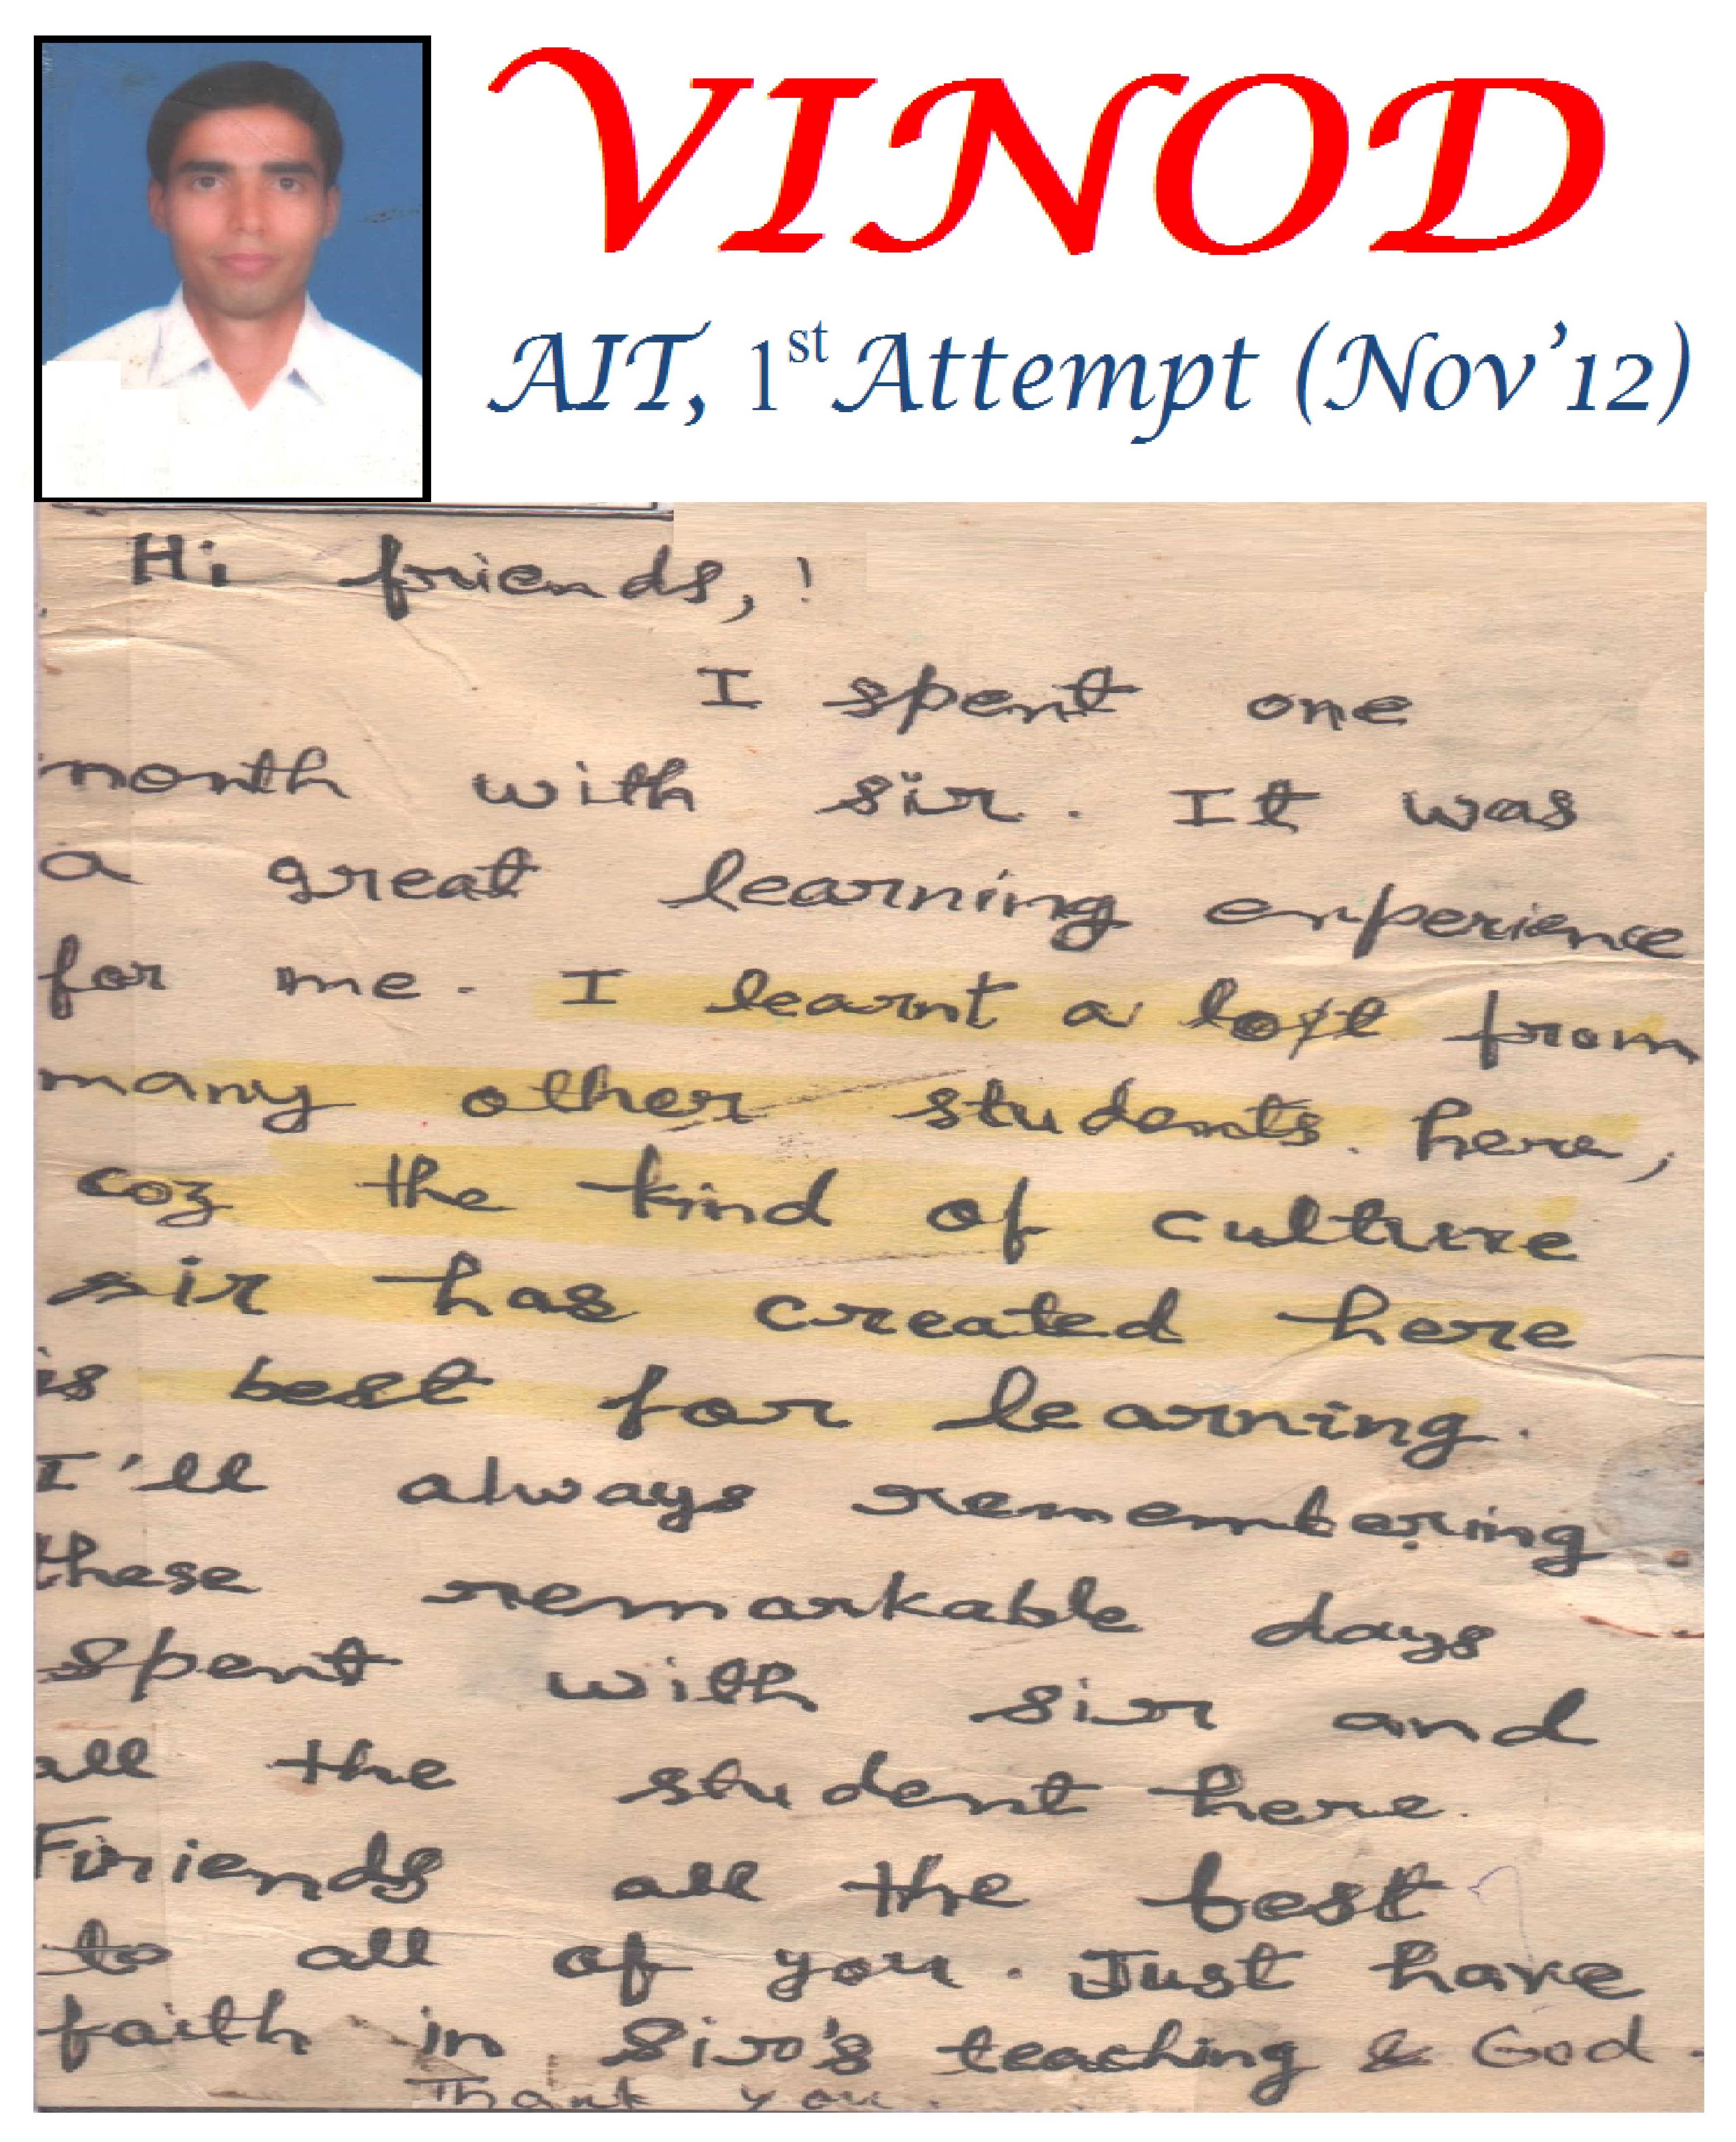 VINOD
AIT, 1st Attempt (Nov'12)
Hi friends,!
I spent one
month with sir. It was
a great learning experience
for me. I learnt a lot from
many other students here,
coz the kind of culture
sir has created here
is best for learning.
I'll always remembering
these remarkable days
spent with sir and
all the student here.
Friends all the best
to all of you. Just have
faith in Sir's teaching & God.
Thank you.